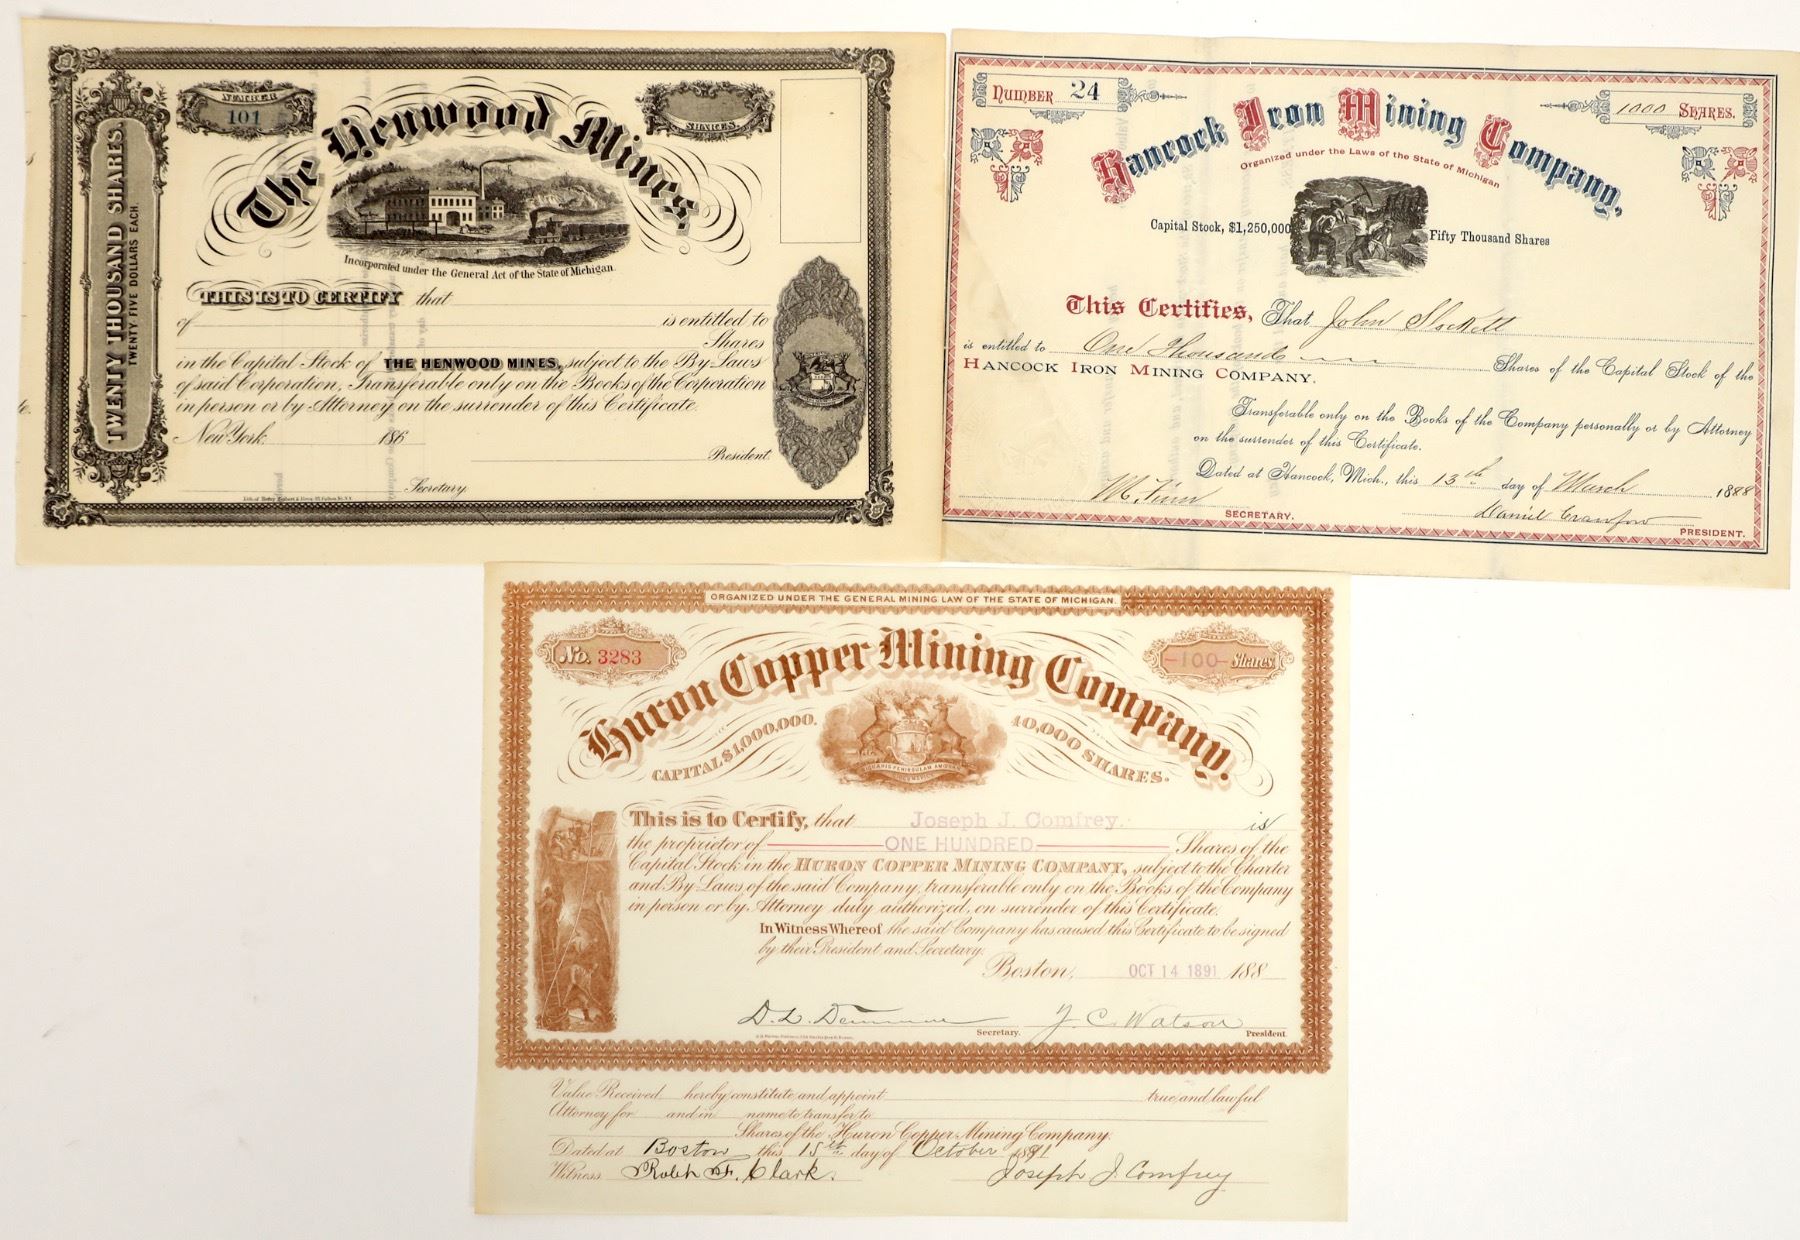 NUMBER
101
The Henwood Mines
SHARES.
TWENTY THOUSAND SHARES.
TWENTY FIVE DOLLARS EACH.
Incorporated under the General Act of the State of Michigan.
THIS IS TO CERTIFY that
of is entitled to
Shares
in the Capital Stock of THE HENWOOD MINES, subject to the By Laws
of said Corporation, Transferable only on the Books of the Corporation
in person or by Attorney on the surrender of this Certificate.
New York 186
President.
Secretary.
NUMBER 24
1000 SHARES.
Hancock Iron Mining Company,
Organized under the Laws of the State of Michigan
Capital Stock, $1,250,000
Fifty Thousand Shares
This Certifies, That John
is entitled to One Thousand Shares of the Capital Stock of the
HANCOCK IRON MINING COMPANY.
Transferable only on the Books of the Company personally or by Attorney
on the surrender of this Certificate.
Dated at Hancock, Mich., this 13th day of March 1888
SECRETARY.
Daniel Crawford
PRESIDENT.
ORGANIZED UNDER THE GENERAL MINING LAW OF THE STATE OF MICHIGAN.
No. 3283
-100- Shares
Huron Copper Mining Company.
CAPITAL $1,000,000.
40,000 SHARES.
This is to Certify, that Joseph J. Comfrey. is
the proprietor of ONE HUNDRED Shares of the
Capital Stock in the HURON COPPER MINING COMPANY, subject to the Charter
and By-Laws of the said Company, transferable only on the Books of the Company
in person or by Attorney duly authorized, on surrender of this Certificate.
In Witness Whereof the said Company has caused this Certificate to be signed
by their President and Secretary.
Boston, OCT 14 1891 188
D. L. Demmon
Secretary.
J. C. Watson
President
Value Received, hereby constitute and appoint true and lawful
Attorney for and in name to transfer to
Shares of the Huron Copper Mining Company.
Dated at Boston this 15th day of October 1891
Witness Ralph F. Clark. Joseph J. Comfrey